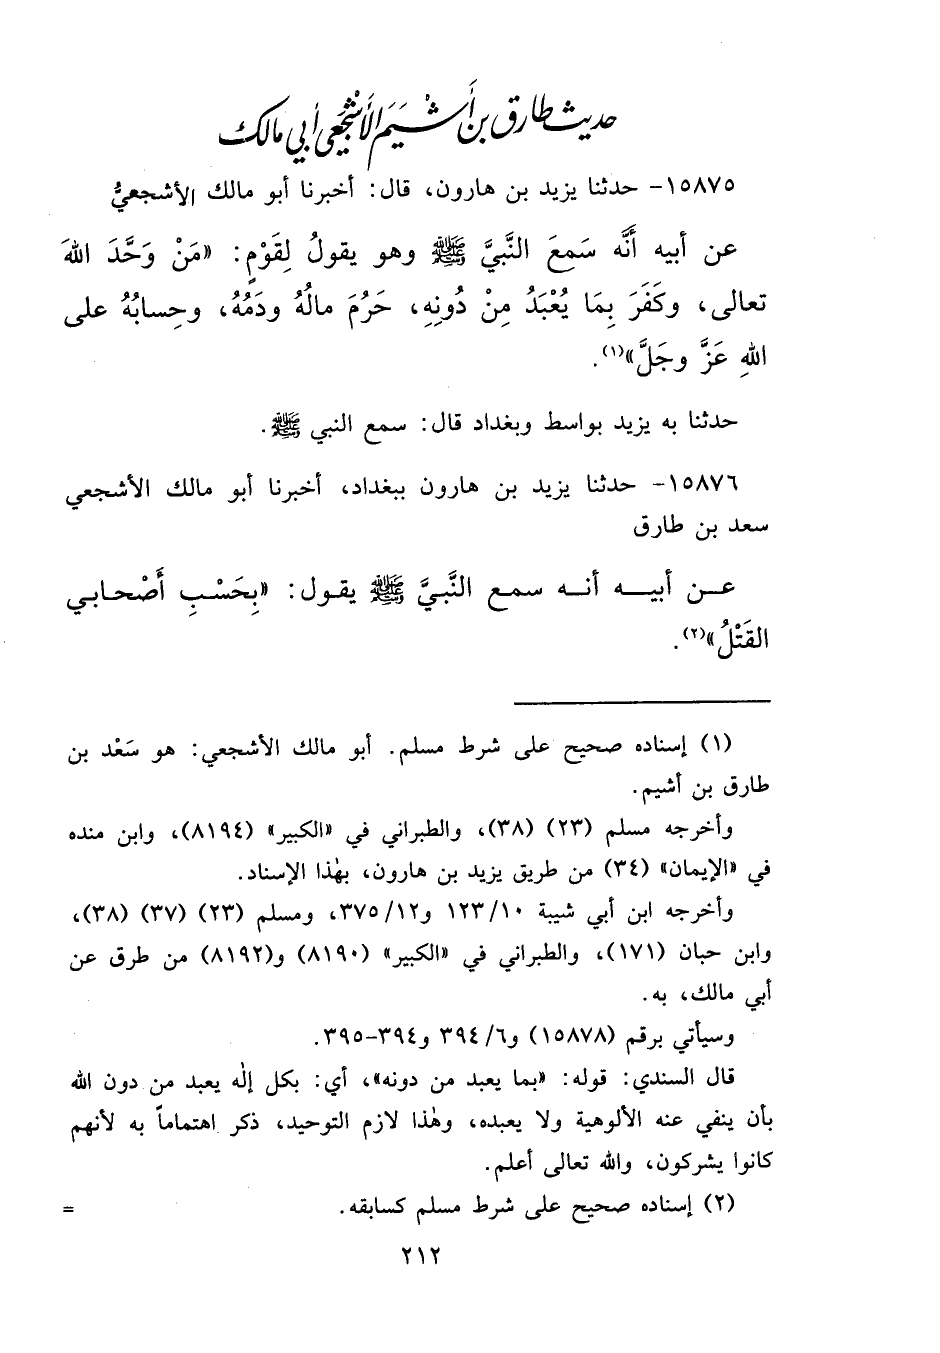 حديث طارق بن أَشْيَمَ الأَشْجَعي أبي مالك
١٥٨٧٥- حدثنا يزيد بن هارون، قال: أخبرنا أبو مالك الأشجعيُّ
عن أبيه أنَّه سَمعَ النَّبيَّ ﷺ وهو يقولُ لِقَوْمٍ: «مَنْ وَحَّدَ اللهَ
تعالى، وكَفَرَ بِمَا يُعْبَدُ مِنْ دُونِهِ، حَرُمَ مالُهُ ودَمُهُ، وحِسابُهُ على
اللهِ عَزَّ وجَلَّ»(١).
حدثنا به يزيد بواسط وبغداد قال: سمع النبي ﷺ.
١٥٨٧٦- حدثنا يزيد بن هارون ببغداد، أخبرنا أبو مالك الأشجعي
سعد بن طارق
عـن أبيـــه أنـه سمـع النَّبيَّ ﷺ يقـول: «بِحَسْبِ أَصْحـابـي
القَتْلُ»(٢).
(١) إسناده صحيح على شرط مسلم. أبو مالك الأشجعي: هو سَعْد بن
طارق بن أشيم.
وأخرجه مسلم (٢٣) (٣٨)، والطبراني في «الكبير» (٨١٩٤)، وابن منده
في «الإيمان» (٣٤) من طريق يزيد بن هارون، بهٰذا الإسناد.
وأخرجه ابن أبي شيبة ١٢٣/١٠ و٣٧٥/١٢، ومسلم (٢٣) (٣٧) (٣٨)،
وابن حبان (١٧١)، والطبراني في «الكبير» (٨١٩٠) و(٨١٩٢) من طرق عن
أبي مالك، به.
وسيأتي برقم (١٥٨٧٨) و٣٩٤/٦ و٣٩٤-٣٩٥.
قال السندي: قوله: «بما يعبد من دونه»، أي: بكل إلٰه يعبد من دون الله
بأن ينفي عنه الألوهية ولا يعبده، وهٰذا لازم التوحيد، ذكر اهتماماً به لأنهم
كانوا يشركون، والله تعالى أعلم.
(٢) إسناده صحيح على شرط مسلم كسابقه. =
٢١٢